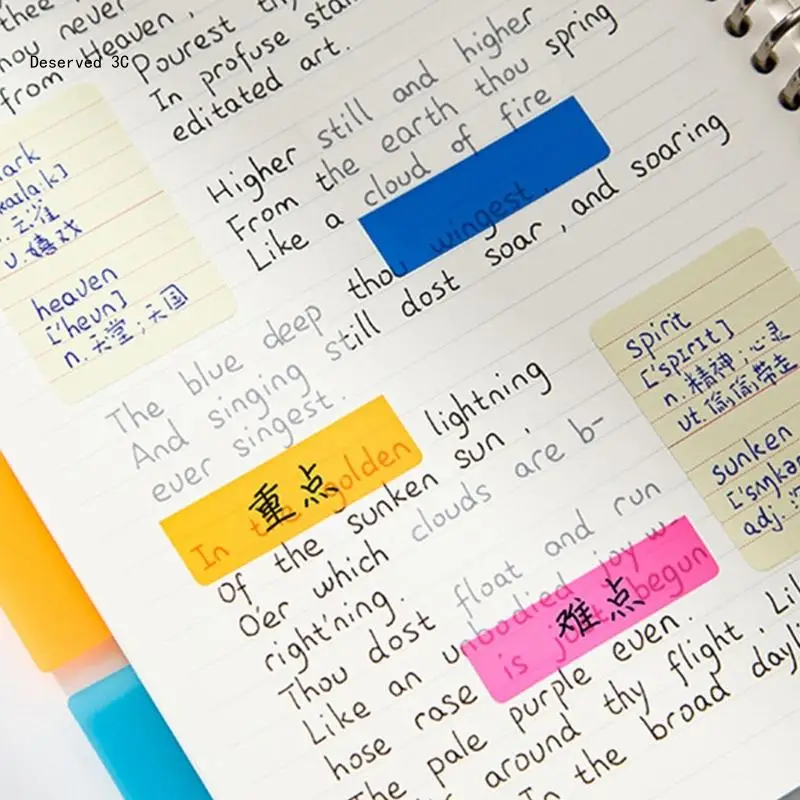 thee
hou never
from Heaven,
Deserved 3C
Pourest thy
In profuse
editated art.
Higher still and higher
From the earth thou spring
Like a cloud of fire
The blue deep thou wingest,
And singing still dost soar, and soaring
ever singest.
In the golden lightning
重点
Of the sunken sun,
O'er which clouds are b-
right'ning.
Thou dost float and run
Like an unbodied joy w
hose rase is just begun
难点
The pale purple even.
around thy flight, Lik
In the broad dayli
ark
v. 嬉戏
heaven
['hevn]
n. 天堂;天国
spirit
['spIrIt]
n. 精神,心灵
vt. 偷偷带走
sunken
adj.